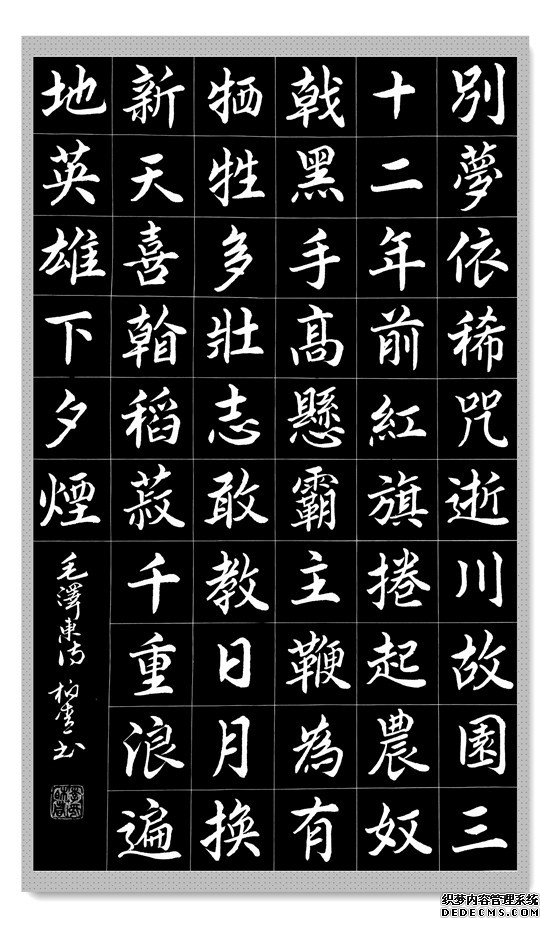 別夢依稀咒逝川故園三
十二年前紅旗捲起農奴
戟黑手高懸霸主鞭為有
牺牲多壯志敢教日月換
新天喜稻菽千重浪遍
地英雄下夕煙
毛澤東詩 書
织梦内容管理系统
DEDECMS.COM